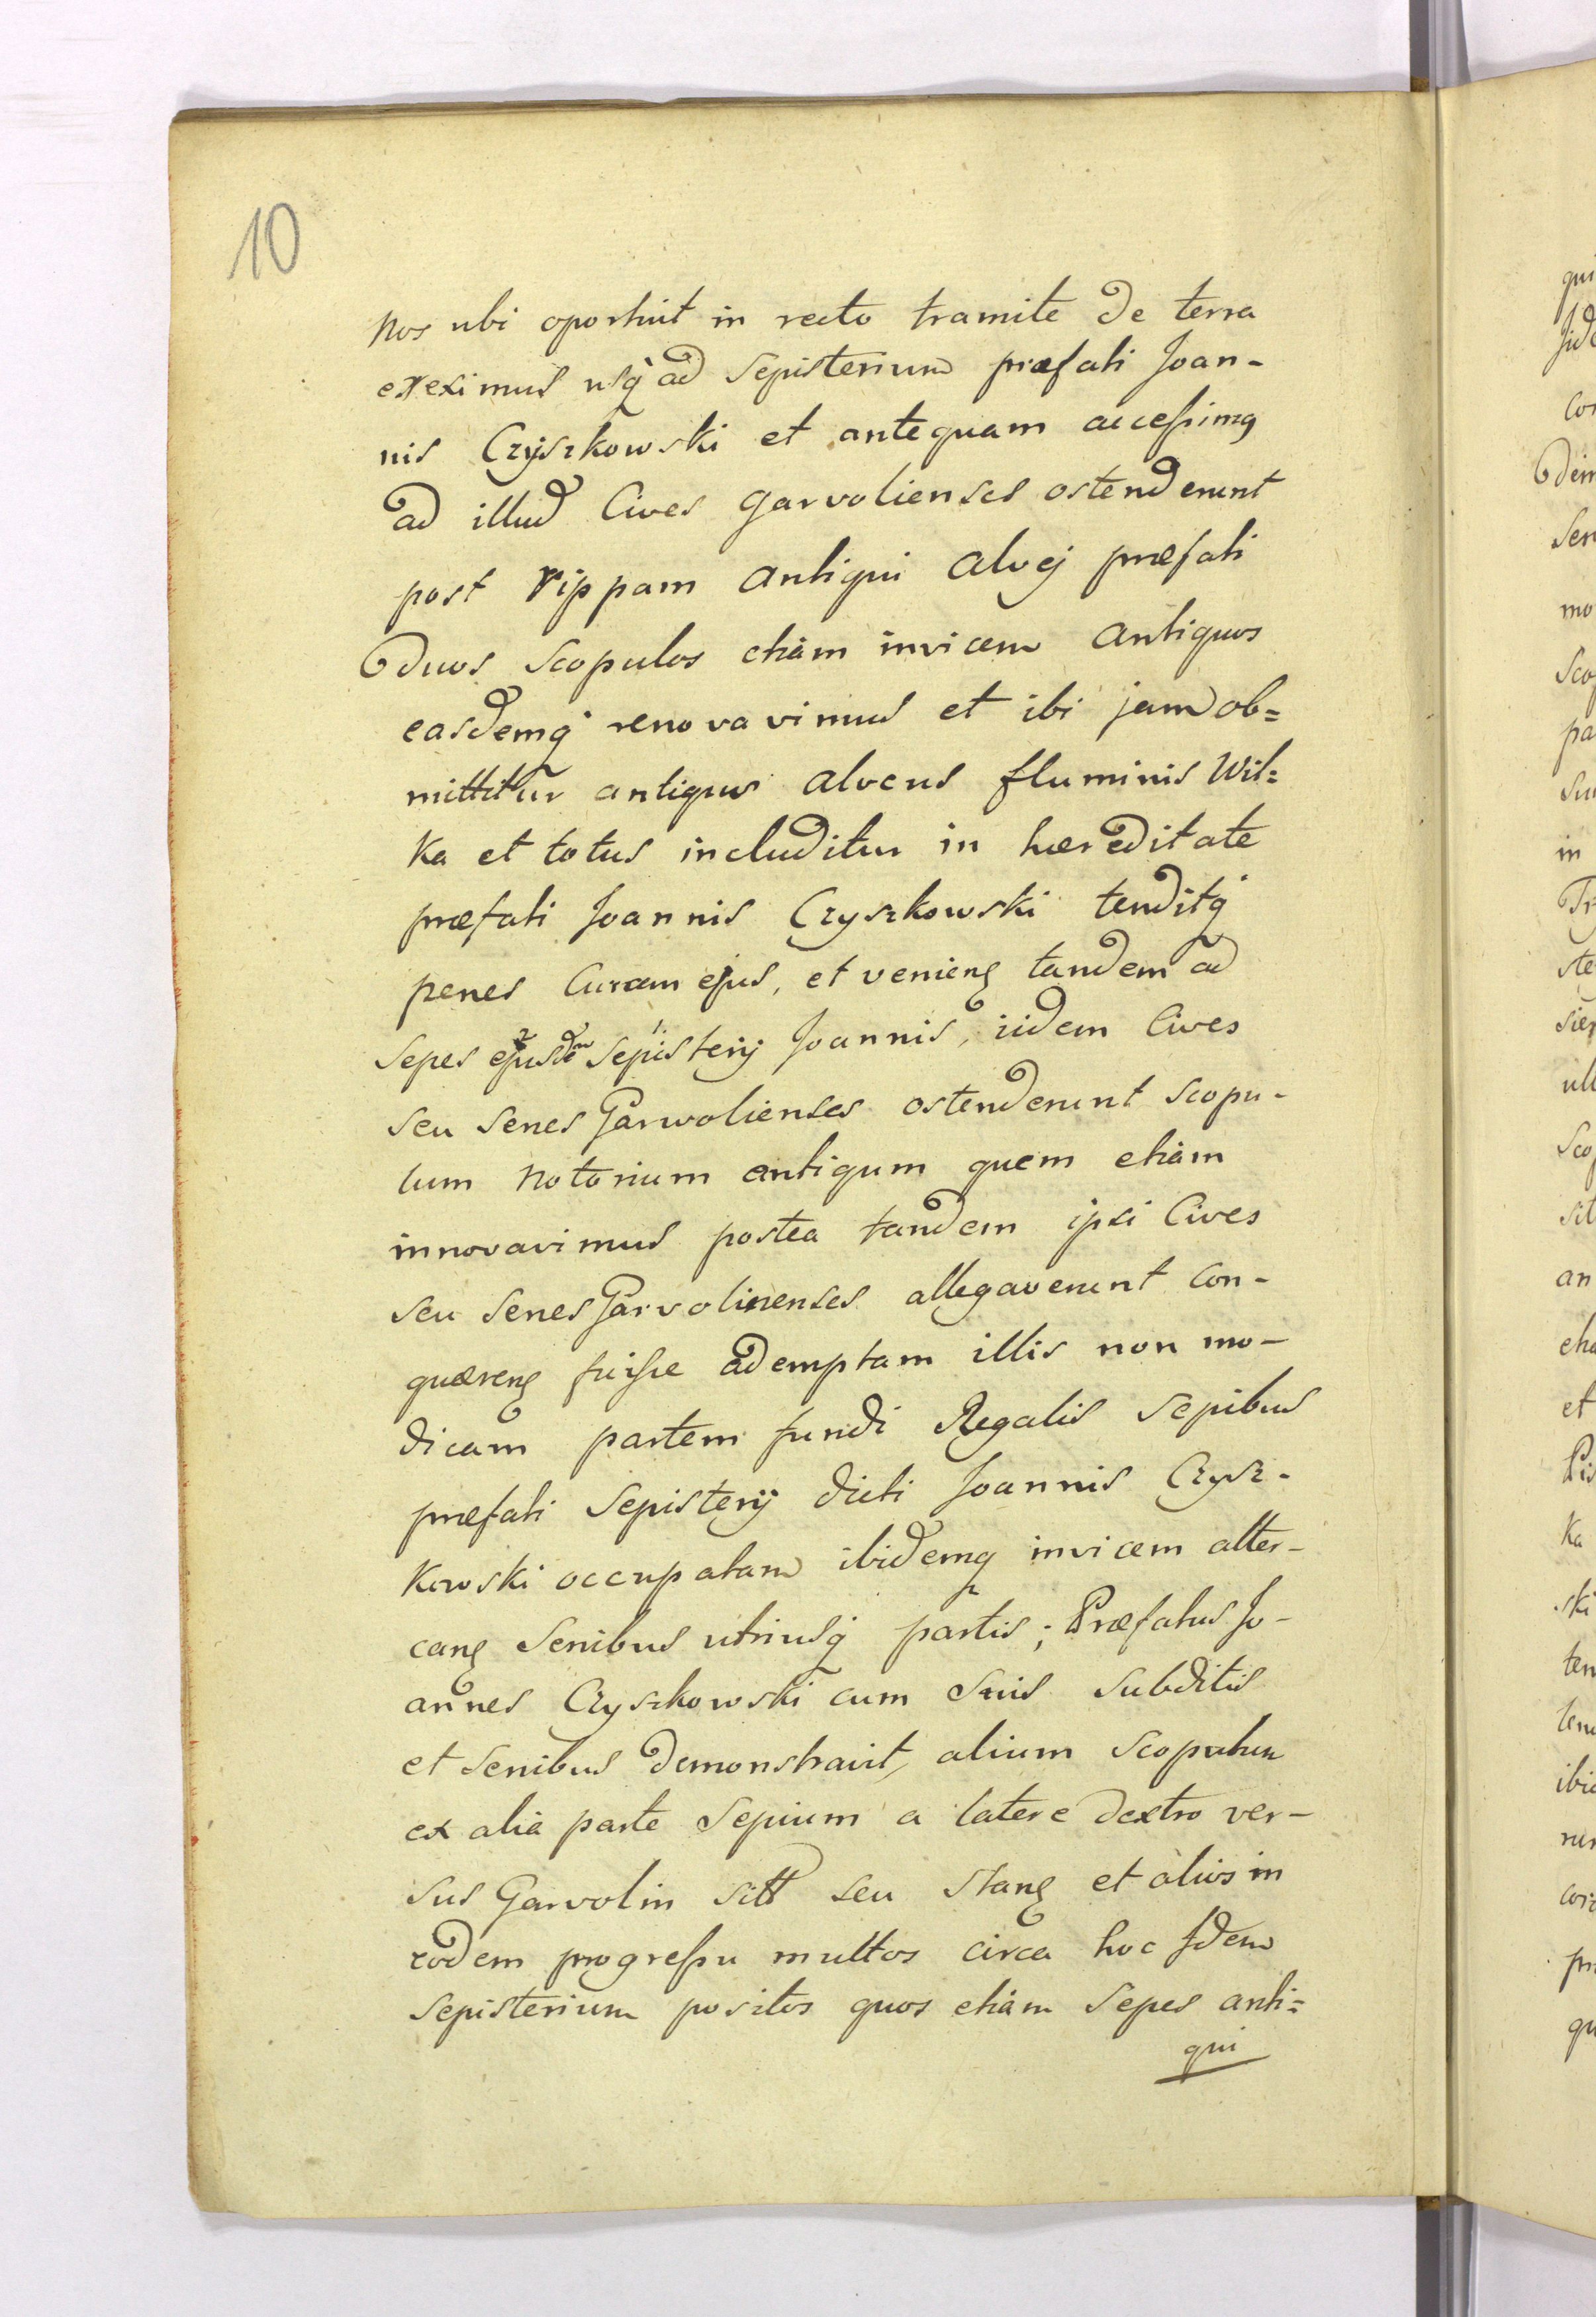 10
nos ubi oportuit in recto tramite de terra
ereximus usq ad Sepisterium præfati Joan-
nis Czyszkowski et antequam accessimq
ad illud Cives Garvolienses ostenderunt
post rippam antiqui alvej præfati
duos Scopulos etiam invicem antiquos
easdemq renovavimus et ibi jam ob=
mittitur antiquus alveus fluminis Wil=
ka et totus includitur in hæreditate
præfati Joannis Czyszkowski tenditq
penes Curam ejus, et veniens tandem ad
Sepes ejusdem Sepisterij Joannis, iidem Cives
seu Senes Garwolienses ostenderunt Scopu-
lum notorium antiqum quem etiam
innovavimus postea tandem ipsi Cives
seu Senes Garvolinenses allegaverunt con-
quærens fuisse ademptam illis non mo-
dicam partem fundi Regalis Sepibus
præfati Sepisterij dicti Joannis Czysz-
kowski occupatam ibidemq invicem alter-
cans Senibus utriusq partis; Præfatus Jo-
annes Czyszkowski cum Suis Subditis
et Senibus demonstravit, alium Scopulum
ex alia parte Sepium a latere dextro ver-
sus Garvolin sitt seu stans et alios in
eodem progressu multos circa hoc idem
Sepisterium positos quos etiam Sepes anti=
qui